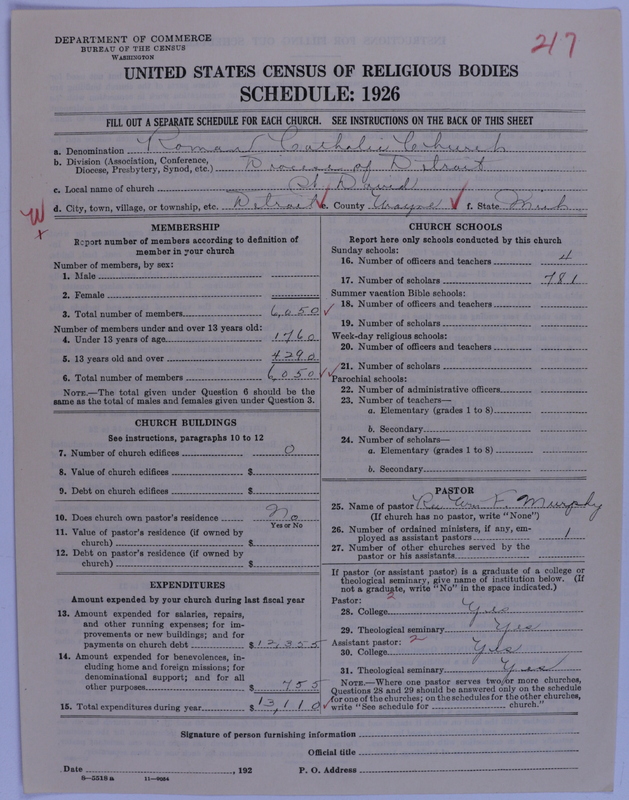 DEPARTMENT OF COMMERCE
BUREAU OF THE CENSUS
WASHINGTON
217
UNITED STATES CENSUS OF RELIGIOUS BODIES
SCHEDULE: 1926
FILL OUT A SEPARATE SCHEDULE FOR EACH CHURCH. SEE INSTRUCTIONS ON THE BACK OF THIS SHEET
a. Denomination Roman Catholic Church
b. Division (Association, Conference, Diocese, Presbytery, Synod, etc.) Diocese of Detroit
c. Local name of church St David
d. City, town, village, or township, etc. Detroit e. County Wayne f. State Mich
W
x
MEMBERSHIP
Report number of members according to definition of
member in your church
Number of members, by sex:
1. Male
2. Female
3. Total number of members 6,050
Number of members under and over 13 years old:
4. Under 13 years of age 1760
5. 13 years old and over 4290
6. Total number of members 6,050
NOTE.—The total given under Question 6 should be
same as the total of males and females given under Question 3.
CHURCH BUILDINGS
See instructions, paragraphs 10 to 12
7. Number of church edifices 0
8. Value of church edifices $
9. Debt on church edifices $
10. Does church own pastor's residence No
Yes or No
11. Value of pastor's residence (if owned by
church) $
12. Debt on pastor's residence (if owned by
church) $
EXPENDITURES
Amount expended by your church during last fiscal year
13. Amount expended for salaries, repairs,
and other running expenses; for im-
provements or new buildings; and for
payments on church debt $12,355
14. Amount expended for benevolences, in-
cluding home and foreign missions; for
denominational support; and for all
other purposes $755
15. Total expenditures during year $13,110
CHURCH SCHOOLS
Report here only schools conducted by this church
Sunday schools:
16. Number of officers and teachers 4
17. Number of scholars 781
Summer vacation Bible schools:
18. Number of officers and teachers
19. Number of scholars
Week-day religious schools:
20. Number of officers and teachers
21. Number of scholars
Parochial schools:
22. Number of administrative officers
23. Number of teachers—
a. Elementary (grades 1 to 8)
b. Secondary
24. Number of scholars—
a. Elementary (grades 1 to 8)
b. Secondary
PASTOR
25. Name of pastor Rev Wm F. Murphy
(If church has no pastor, write "None")
26. Number of ordained ministers, if any, em-
ployed as assistant pastors 1
27. Number of other churches served by the
pastor or his assistants
If pastor (or assistant pastor) is a graduate of a college or
theological seminary, give name of institution below. (If
not a graduate, write "No" in the space indicated.)
Pastor: 2
28. College Yes
29. Theological seminary Yes
Assistant pastor: 2
30. College Yes
31. Theological seminary Yes
NOTE.—Where one pastor serves two or more churches,
Questions 28 and 29 should be answered only on the schedule
for one of the churches; on the schedules for the other churches,
write "See schedule for church."
Signature of person furnishing information
Official title
Date , 192 P. O. Address
8—5518a 11—9084